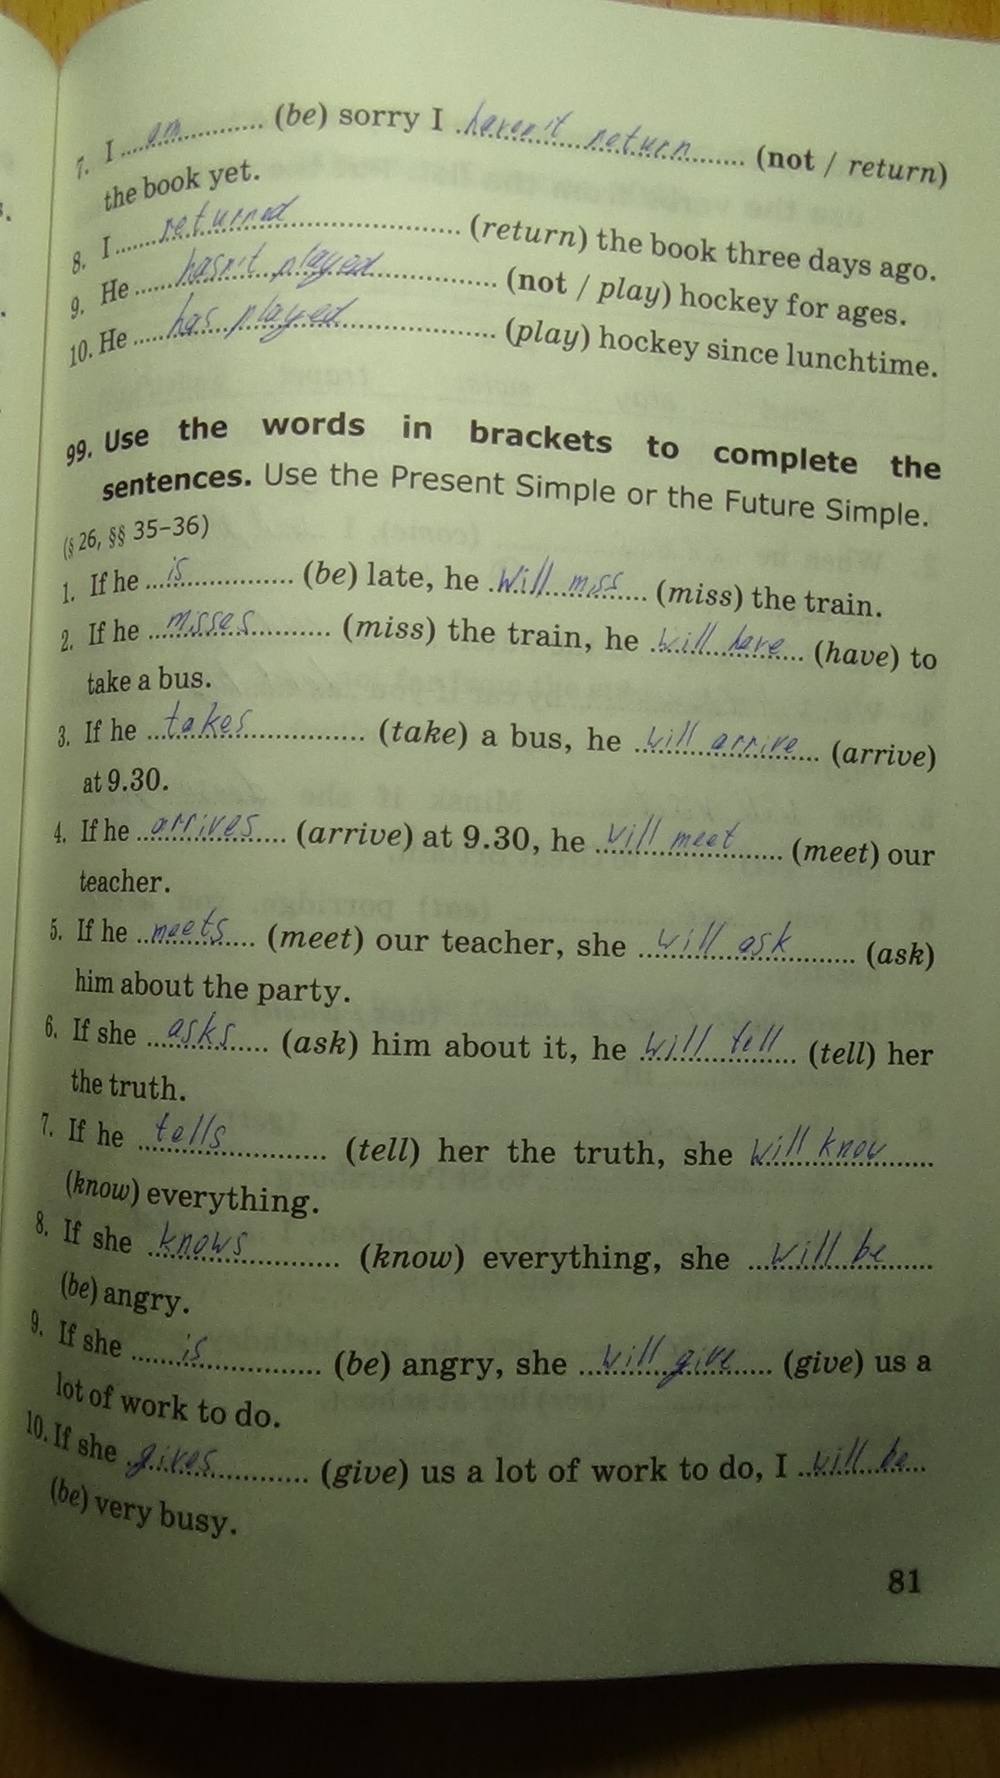 7. I ... am ... (be) sorry I ... haven't return ... (not / return)
the book yet.
8. I ... returned ... (return) the book three days ago.
9. He ... hasn't played ... (not / play) hockey for ages.
10. He ... has played ... (play) hockey since lunchtime.
99. Use the words in brackets to complete the
sentences. Use the Present Simple or the Future Simple.
(§ 26, §§ 35–36)
1. If he ... is ... (be) late, he ... will miss ... (miss) the train.
2. If he ... misses ... (miss) the train, he ... will have ... (have) to
take a bus.
3. If he ... takes ... (take) a bus, he ... will arrive ... (arrive)
at 9.30.
4. If he ... arrives ... (arrive) at 9.30, he ... will meet ... (meet) our
teacher.
5. If he ... meets ... (meet) our teacher, she ... will ask ... (ask)
him about the party.
6. If she ... asks ... (ask) him about it, he ... will tell ... (tell) her
the truth.
7. If he ... tells ... (tell) her the truth, she will know ...
(know) everything.
8. If she ... knows ... (know) everything, she ... will be ...
(be) angry.
9. If she ... is ... (be) angry, she ... will give ... (give) us a
lot of work to do.
10. If she ... gives ... (give) us a lot of work to do, I ... will be ...
(be) very busy.
81